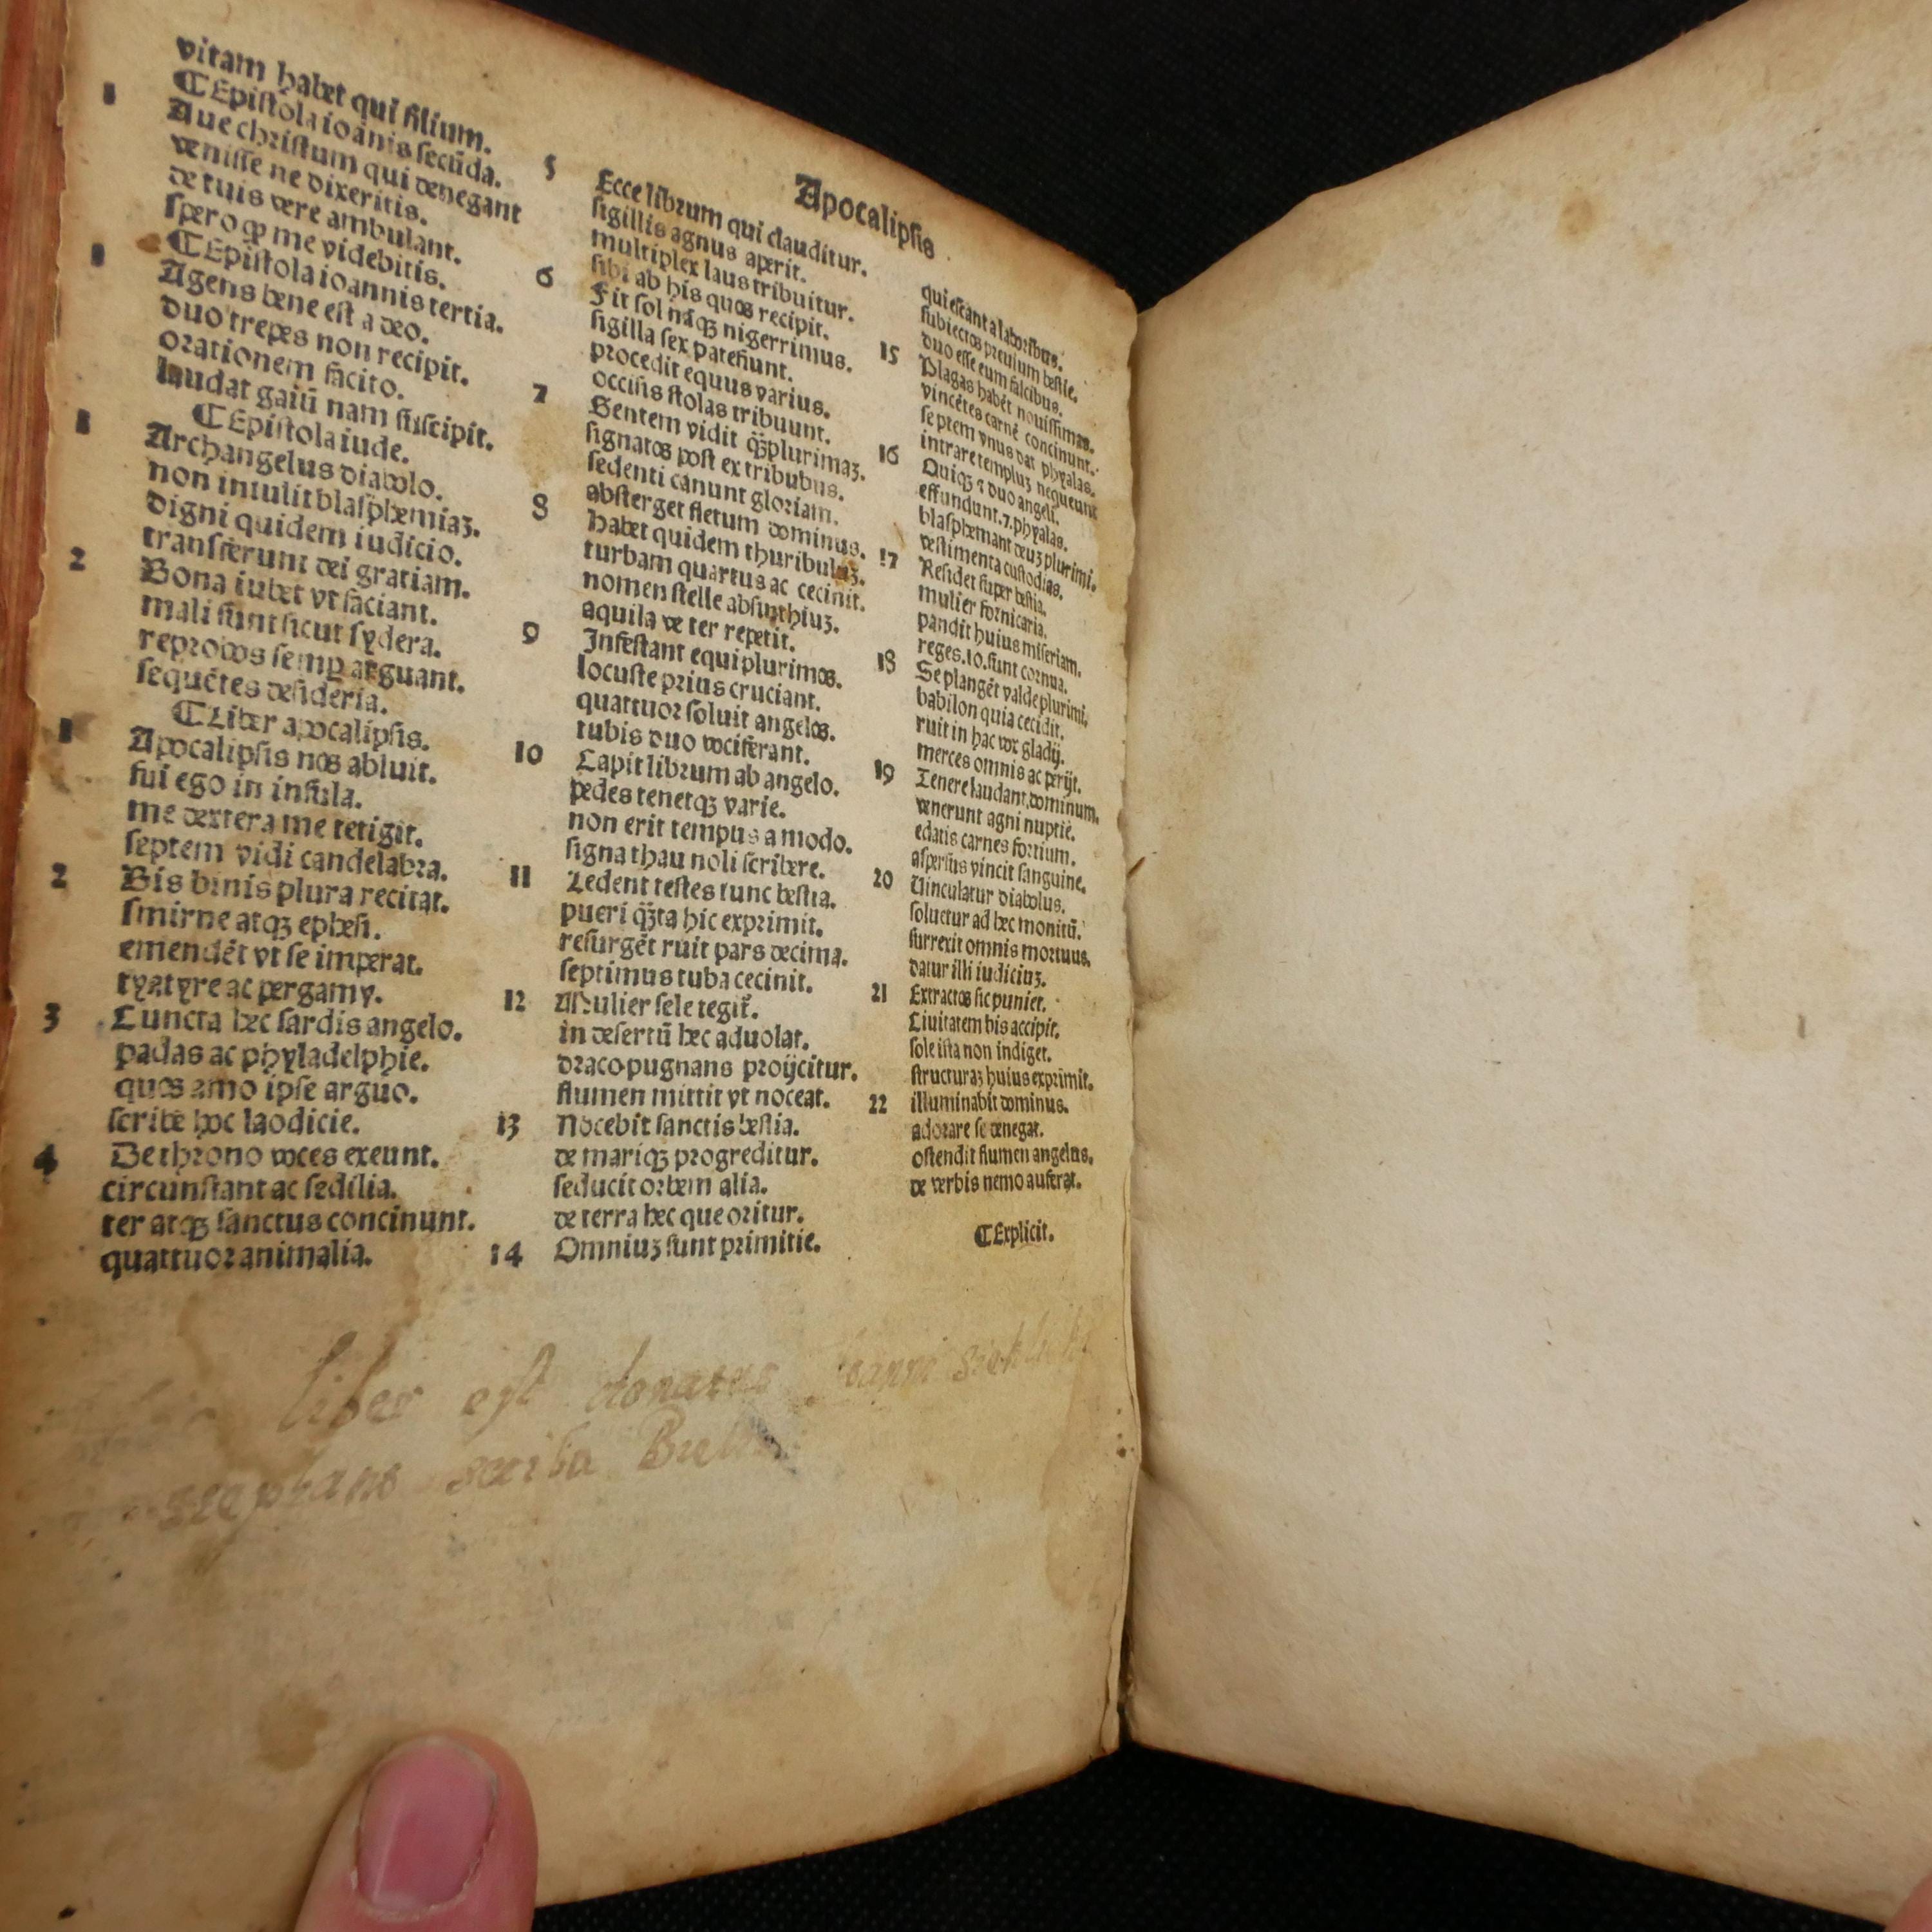 Apocalipsis
vitam habet qui filium.
¶Epistola ioānis secūda.
1 Aue christum qui denegant
venisse ne dixeritis.
de tuis vere ambulant.
spero qp me videbitis.
¶Epistola ioannis tertia.
1 Agens bene est a deo.
duo trepes non recipit.
orationem facito.
laudat gaiū nam suscipit.
¶Epistola iude.
1 Archangelus diabolo.
non intulit blasphemiaꝫ.
digni quidem iudicio.
transferunt dei gratiam.
2 Bona iubet vt faciant.
mali sunt sicut sydera.
reprobos semꝑ arguant.
sequētes desideria.
¶Liber apocalipsis.
1 Apocalipsis nos abluit.
fui ego in insula.
me dextera me tetigit.
septem vidi candelabra.
2 Bis binis plura recitat.
smirne atqꝫ ephesi.
emendēt vt se imperat.
tyatyre ac pergamy.
3 Cuncta hec sardis angelo.
padas ac phyladelphie.
quos amo ipse arguo.
scribe hoc laodicie.
4 De throno voces exeunt.
circunstant ac sedilia.
ter atqꝫ sanctus concinunt.
quattuor animalia.
5 Ecce librum qui clauditur.
sigillis agnus aperit.
multiplex laus tribuitur.
sibi ab his quos recipit.
6 Fit sol nāqꝫ nigerrimus.
sigilla sex patefiunt.
procedit equus varius.
occisis stolas tribuunt.
7 Gentem vidit qꝫplurimaꝫ.
signatos post ex tribubus.
sedenti canunt gloriam.
absterget fletum dominus.
8 Habet quidem thuribuluꝫ.
turbam quartus ac cecinit.
nomen stelle absinthiuꝫ.
aquila ve ter repetit.
9 Infestant equi plurimos.
locuste prius cruciant.
quattuor soluit angelos.
tubis duo vociferant.
10 Capit librum ab angelo.
pedes tenetqꝫ varie.
non erit tempus a modo.
signa thau noli scribere.
11 Ledent testes tunc bestia.
pueri qꝫta hic exprimit.
resurgēt ruit pars decima.
septimus tuba cecinit.
12 Mulier sele tegit̄.
in desertū hec aduolat.
draco pugnans proijcitur.
flumen mittit vt noceat.
13 Nocebit sanctis bestia.
de mariqꝫ progreditur.
seducit orbem alia.
de terra hec que oritur.
14 Omniuꝫ sunt primitie.
quiescant a laboribus.
subiectos preuium bestie.
duo esse eum falcibus.
15 Plagas habēt nouissimas.
vincētes carnē concinunt.
septem vnus dat phyalas.
intrare templuꝫ nequeunt
16 Quiqꝫ ⁊ duo angeli.
effundunt .7. phyalas.
blasphemant deuꝫ plurimi.
vestimenta custodias.
17 Residet super bestia.
mulier fornicaria.
pandit huius miseriam.
reges .10. sunt cornua.
18 Se plangēt valde plurimi.
babilon quia cecidit.
ruit in hac vox gladij.
merces omnis ac perijt.
19 Tenere laudant dominum.
venerunt agni nuptie.
edatis carnes fortium.
aspersus vincit sanguine.
20 Uinculatur diabolus.
soluetur ad hec monitū.
surrexit omnis mortuus.
datur illi iudiciuꝫ.
21 Extractos sic puniet.
Ciuitatem his accipit.
sole ista non indiget.
structuraꝫ huius exprimit.
22 illuminabit dominus.
adorare se denegat.
ostendit flumen angelus.
de verbis nemo auferat.
¶Explicit.
liber est donatus
scriba